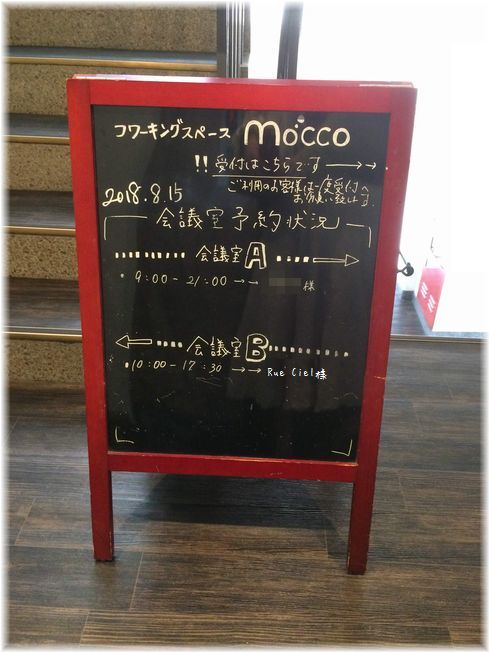 コワーキングスペース mocco
!! 受付はこちらです →→
ご利用のお客様は一度受付へ
お願い致します
2018.8.15
会議室予約状況
会議室 A
・9:00-21:00→→ 様
会議室 B
・10:00-17:30 →→ Rue Ciel様